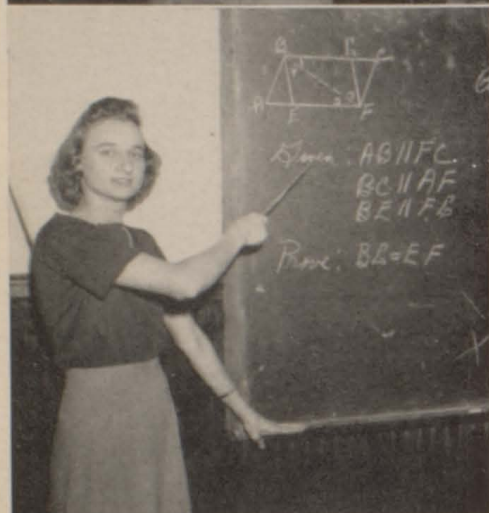 B G C
A E F
Given: AB∥FC
BC∥AF
BE∥FG
Prove: BG=EF